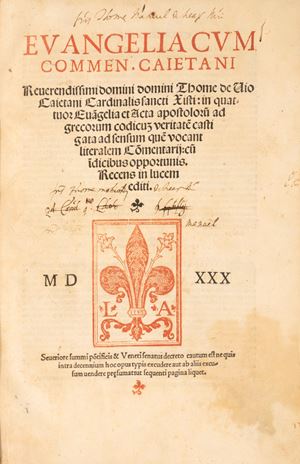 EVANGELIA CVM
COMMEN. CAIETANI
Reuerendissimi domini domini Thome de Vio
Caietani Cardinalis sancti Xisti: in quat-
tuor Euãgelia et Acta apostolorũ ad
grecorum codicum veritatẽ casti
gata ad sensum quẽ vocant
literalem Cõmentarij: cũ
idicibus opportunis.
Recens in lucem
editi.
manuel
MD XXX
L A
Seueriore summi põtificis & Veneti senatus decreto cautum est ne quis
intra decennium hoc opus typis excudere aut ab aliis excu-
sum vendere presumat ut sequenti pagina liquet.